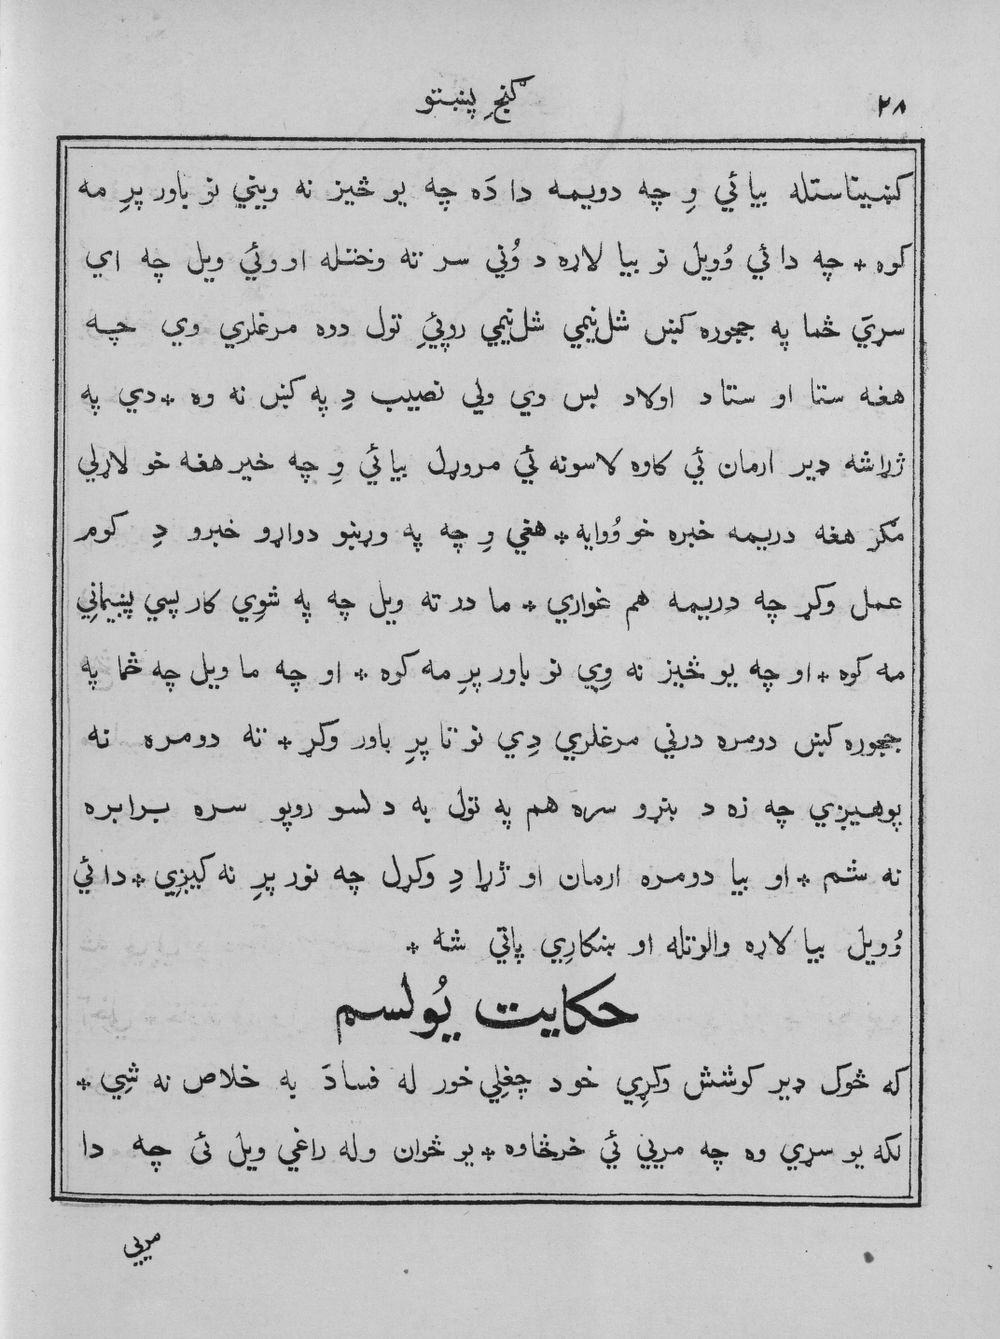 ۲۸
گنجِ پښتو
کښیناستله بیا ئي وِ چه دویمه دا دَه چه یو څیز نه ویني نو باور پرِ مه
کوه * چه دا ئي وُویل نو بیا لاړه د وُني سر ته وختله او وئي ویل چه اي
سړيَ څما په ججوره کښ شل نیمي شل نیمي روپئِ تول دوه مرغلري وي چه
هغه ستا او ستا د اولاد بس وي ولي نصیب دِ په کښ نه وه * دي په
ژړا شه ډیر ارمان ئي کاوه لاسونه ئي مروړل بیا ئي وِ چه خیر هغه خو لاړلي
مگر هغه دریمه خبره خو وُوایه * هغي وِ چه په وړنبو دواړو خبرو دِ کوم
عمل وکړ چه دریمه هم غواري * ما در ته ویل چه په شوِي کار پسي پښیماني
مه کوه * او چه یو څیز نه وِي نو باور پرِ مه کوه * او چه ما ویل چه څما په
ججوره کښ دومره درني مرغلري دِي نو تا پرِ باور وکړ * ته دومره نه
پوهیږي چه زه د بنړو سره هم په تول به د لسو روپو سره برابره
نه شم * او بیا دومره ارمان او ژړا دِ وکړل چه نور پرِ نه کیږِي * دا ئي
وُویل بیا لاړه والوتله او ښکارِي پاتي شه *
حکایت یُولسم
که څوک ډیر کوشش وکړِي خو د چغلِي خور له فسادَ به خلاص نه شِي *
لکه یو سړي وه چه مریي ئي خرڅاوه * یو څوان وله راغي ویل ئی چه دا
مریي